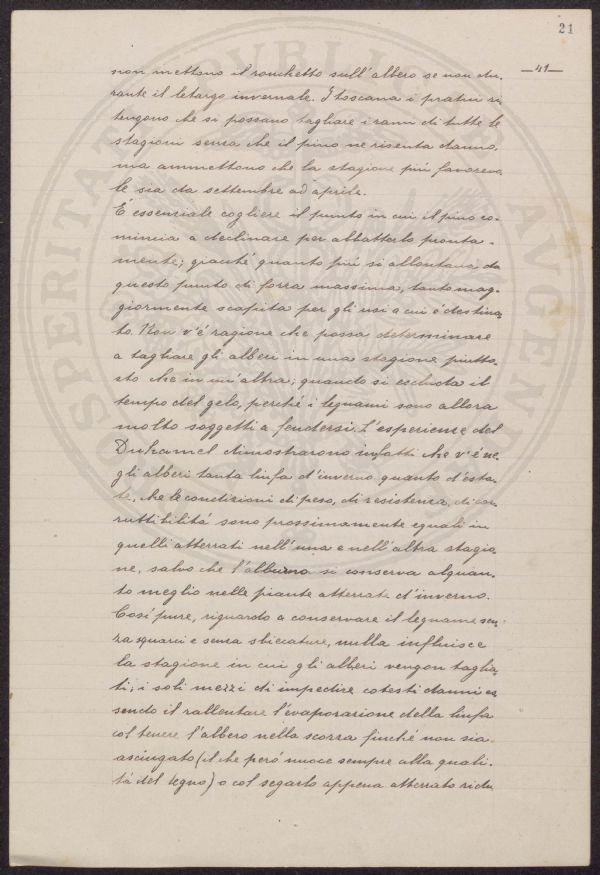 21
—41—
non mettono il ronchetto sull'albero se non du-
rante il letargo invernale. I toscana i pratici ri
tengono che si possano tagliare i rami di tutte le
stagioni senza che il pino ne risenta danno,
ma ammettono che la stagione più favorevo
le sia da settembre ad aprile.
É essenziale cogliere il punto in cui il pino co-
mincia a declinare per abbatterlo pronta-
mente; giacché quanto più si allontana da
questo punto di forza massima, tanto mag-
giormente scapita per gli usi a cui é destina
to. Non v'é ragione che possa determinare
a tagliare gli alberi in una stagione piutto-
sto che in un'altra; quando si escluda il
tempo del gelo, perché i legnami sono allora
molto soggetti a fendersi. L'esperienze del
Duhamel dimostrarono infatti che v'é ne-
gli alberi tanta linfa d'inverno quanto d'esta-
te, che le condizioni di peso, di resistenza, di cor
ruttibilitá sono prossimamente eguali in
quelli atterrati nell'una e nell'altra stagio
ne, salvo che l'alburno si conserva alquan-
to meglio nelle piante atterrate d'inverno.
Cosí pure, riguardo a conservare il legname sen-
za squarci e senza sbiccature, nulla influisce
la stagione in cui gli alberi vengon taglia
ti; i soli mezzi di impedire cotesti danni es
sendo il rallentare l'evaporazione della linfa
col tenere l'albero nella scorza finché non sia
asciugato (il che peró nuoce sempre alla quali-
tá del legno) o col segarlo appena atterrato ridu
PVBLICO
AVGENDAE
PROSPERITATI